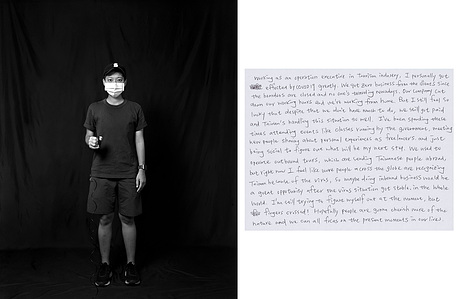 Working as an operation executive in Tourism industry, I personally got
effected by COVID19 greatly. We got zero business from the illness since
the boarders are closed and no one's traveling nowadays. Our company cut
down our working hours and we're working from home. But I still feel so
lucky that despite that we don't have much to do, we still get paid
and Taiwan's handling this situation so well. I've been spending these
times attending events like classes running by the government, meeting
new people sharing about personal experience as freelancers and just
being social to figure out what will be my next step. We used to
operate outbound tours, which are sending Taiwanese people abroad,
but right now I feel like more people across the globe are recognizing
Taiwan because of the virus, so maybe doing inbound business would be
a great opportunity after the virus situation got stable in the whole
world. I'm still trying to figure myself out at the moment, but
fingers crossed! Hopefully people are gonna cherish more of the
nature and we can all focus on the present moments in our lives.